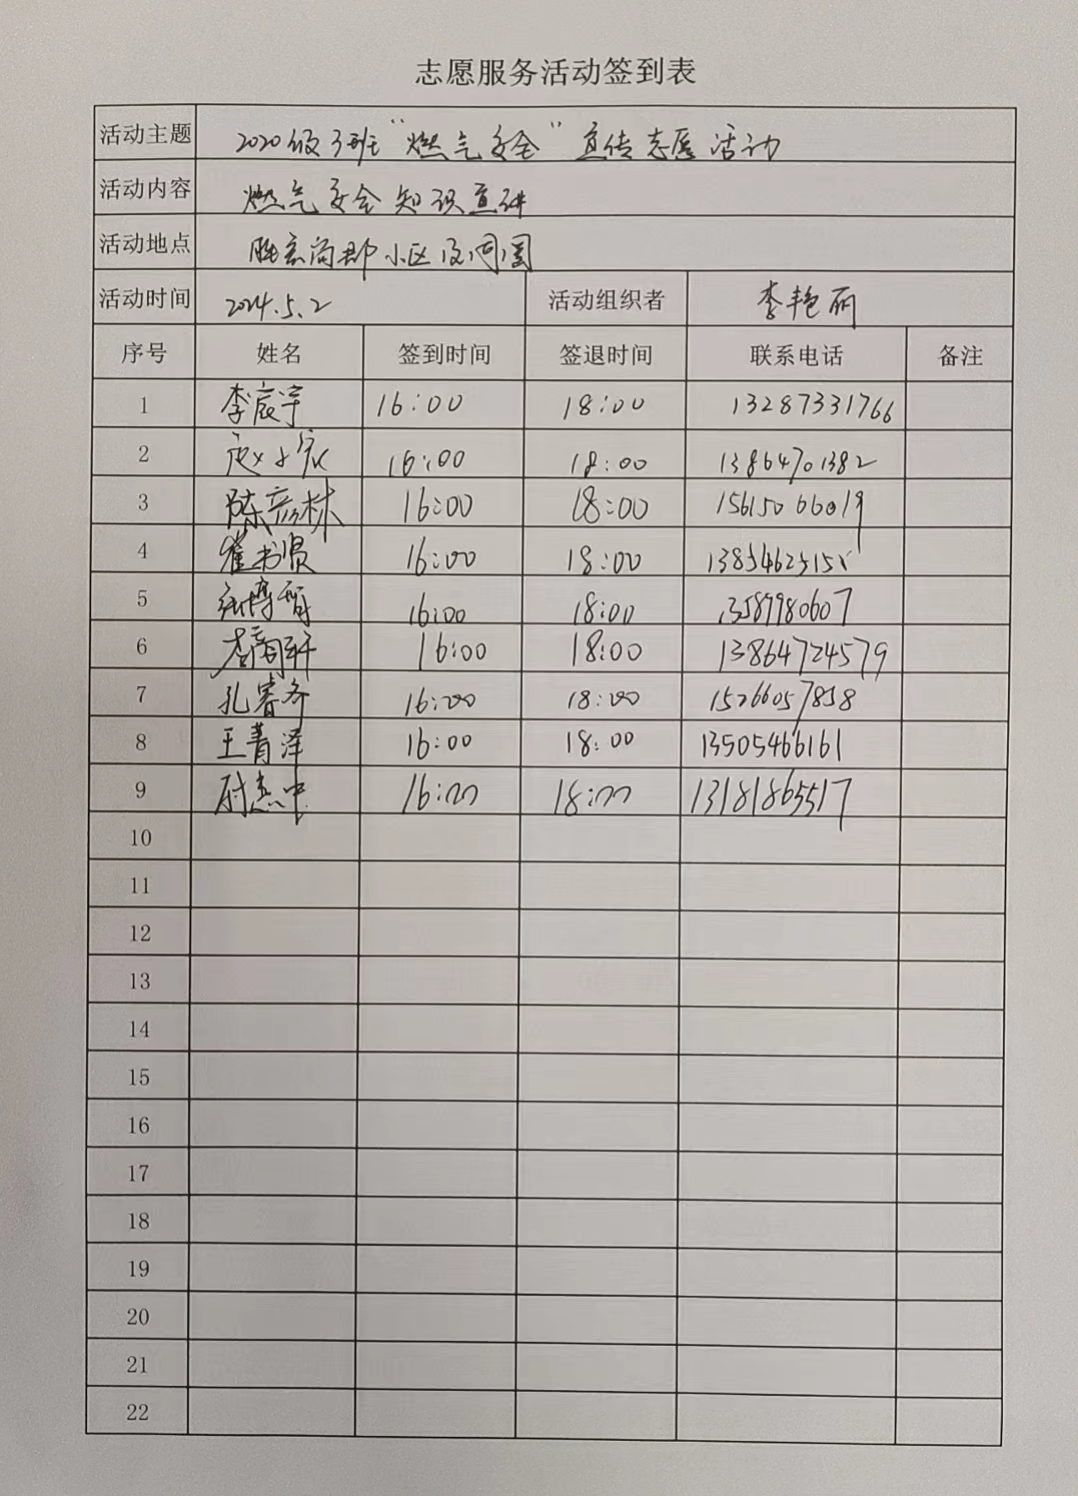 志愿服务活动签到表
活动主题 2020级3班“燃气安全”宣传志愿活动
活动内容 燃气安全知识宣讲
活动地点 胜宏尚郡小区及周围
活动时间 2024.5.2 活动组织者 李艳丽
序号 姓名 签到时间 签退时间 联系电话 备注
1 李宸宇 16:00 18:00 13287331766
2 16:00 18:00 13864701382
3 陈彦林 16:00 18:00 15615066019
4 崔书贤 16:00 18:00
5 张博 16:00 18:00 13589980607
6 16:00 18:00 13864724579
7 孔睿 16:00 18:00 15266057858
8 王菁泽 16:00 18:00 13505466161
9 16:00 18:00 13181865517
10
11
12
13
14
15
16
17
18
19
20
21
22